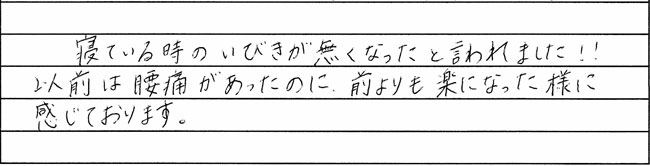 寝ている時のいびきが無くなったと言われました!!
以前は腰痛があったのに、前よりも楽になった様に
感じております。